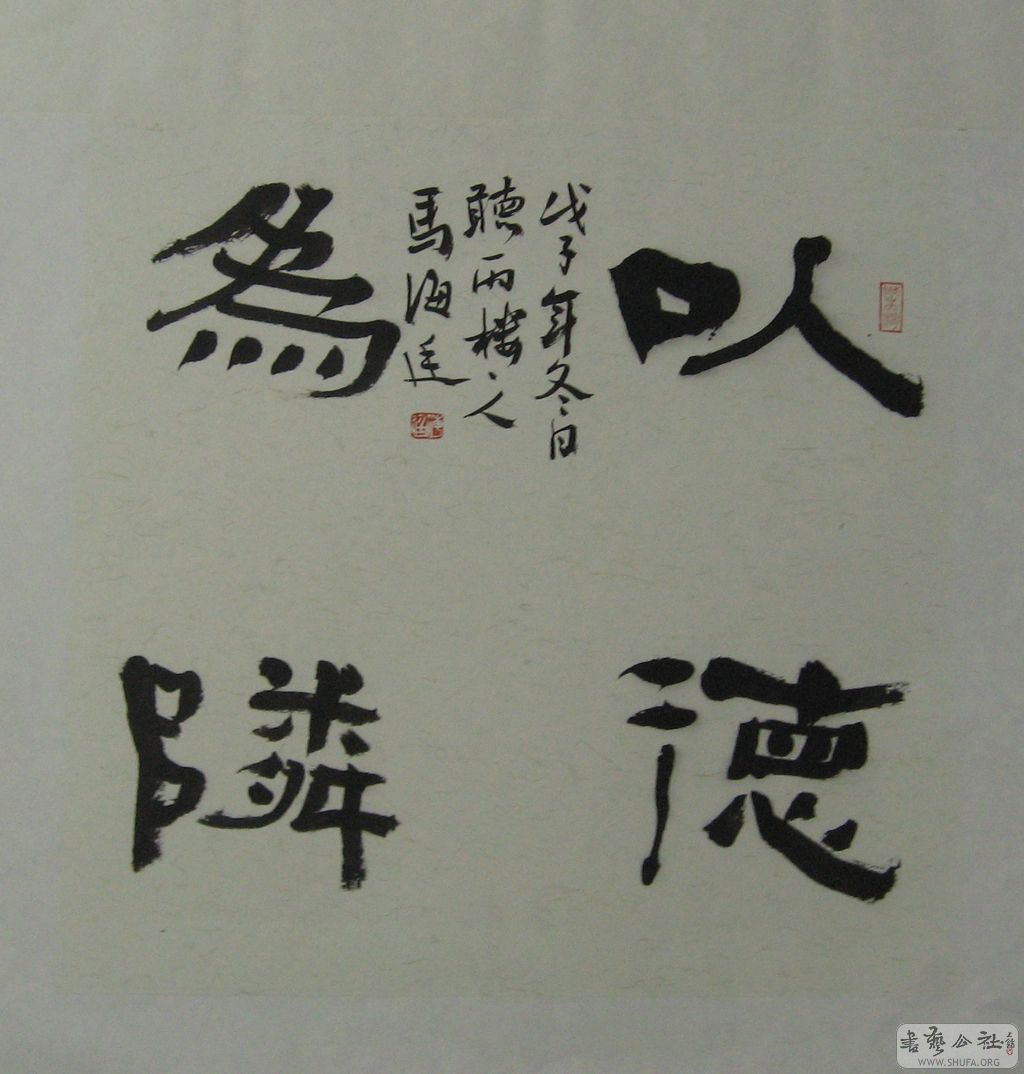 以德
為隣
戊子年冬日
聽雨樓主人
馬海廷
書藝公社
WWW.SHUFA.ORG